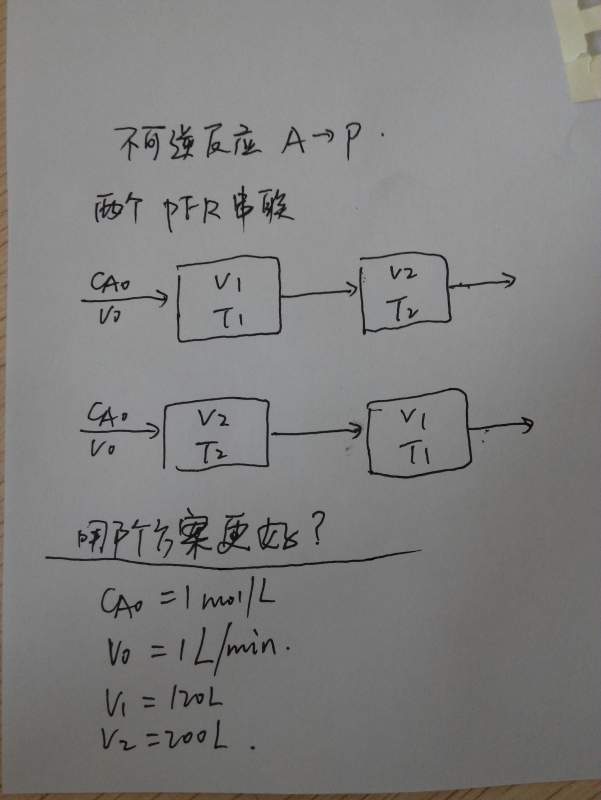 不可逆反应 A→P.
两个 PFR 串联
CA0
V0
V1
T1
V2
T2
CA0
V0
V2
T2
V1
T1
哪个方案更好?
CA0 = 1 mol/L
V0 = 1 L/min.
V1 = 120L
V2 = 200L.